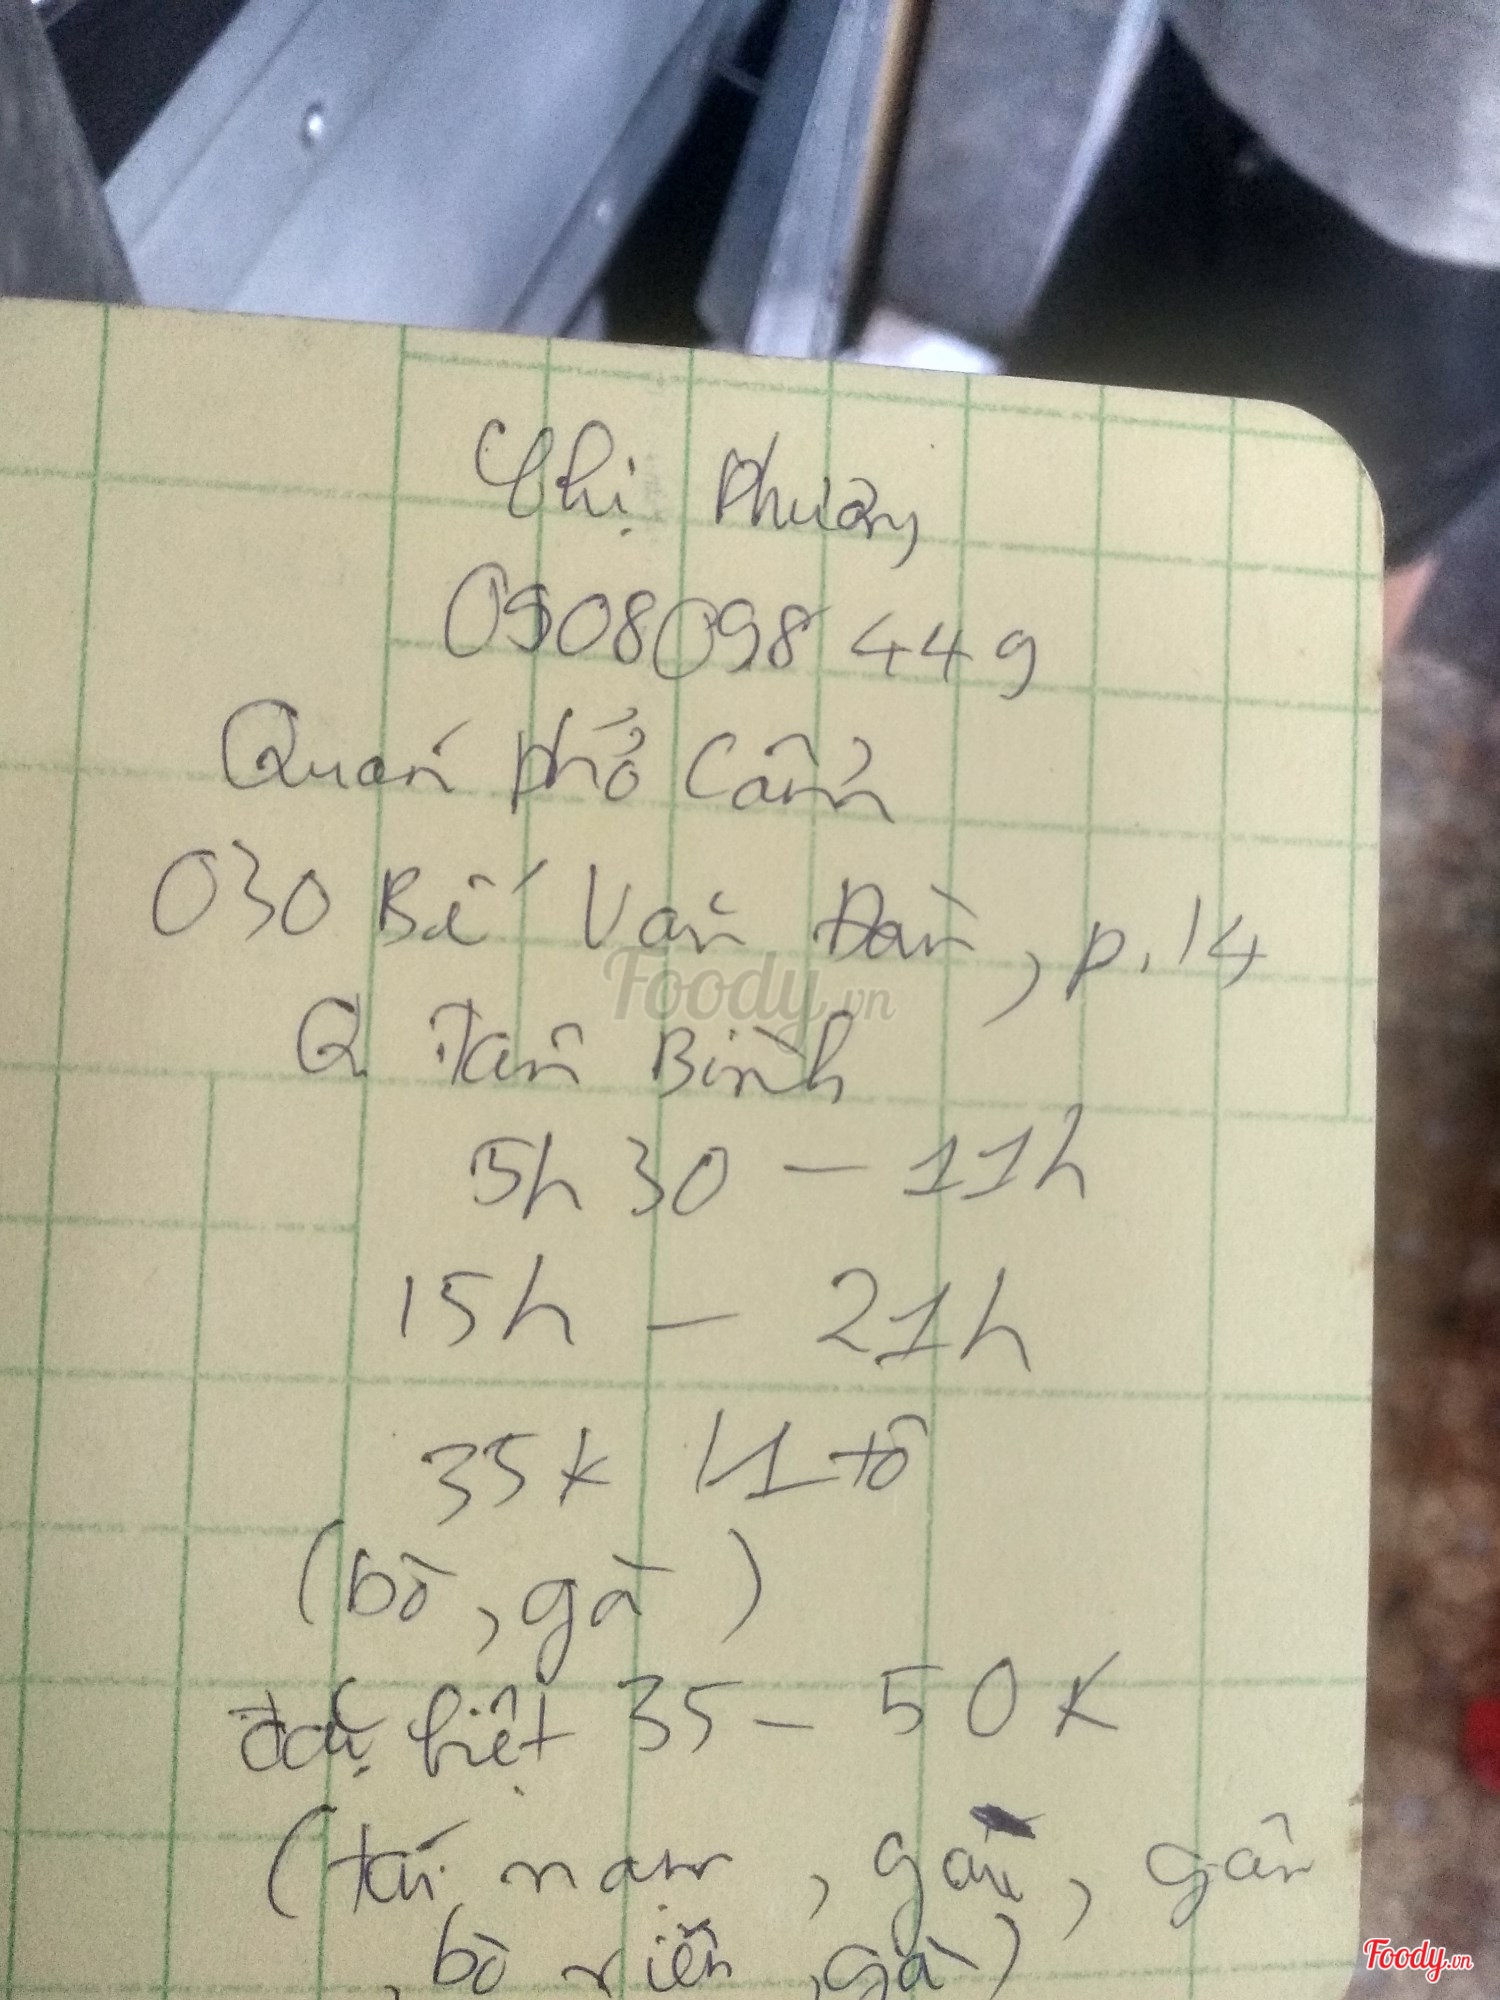 Chị Phương
0908098 449
Quán phở Cẩm
030 Bế Văn Đàn, p.14
Q. Tân Bình
5h30 - 11h
15h - 21h
35k / 1 tô
(bò, gà)
đặc biệt 35 - 50k
(tái nạm, gầu, gân
, bò viên, gà)
Foody.vn
Foody.vn